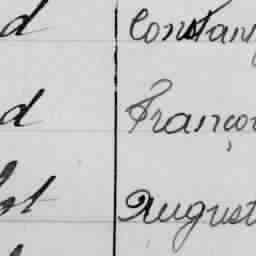 d Constan
d Françoi
st August